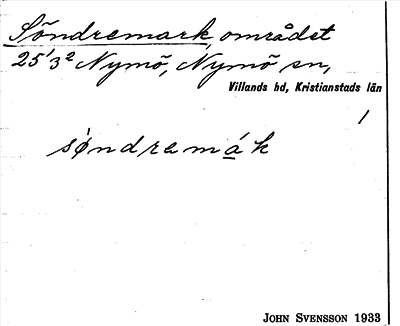 Söndremark, området
25¹3² Nymö, Nymö sn,
Villands hd, Kristianstads län
1
söndremák
JOHN SVENSSON 1933